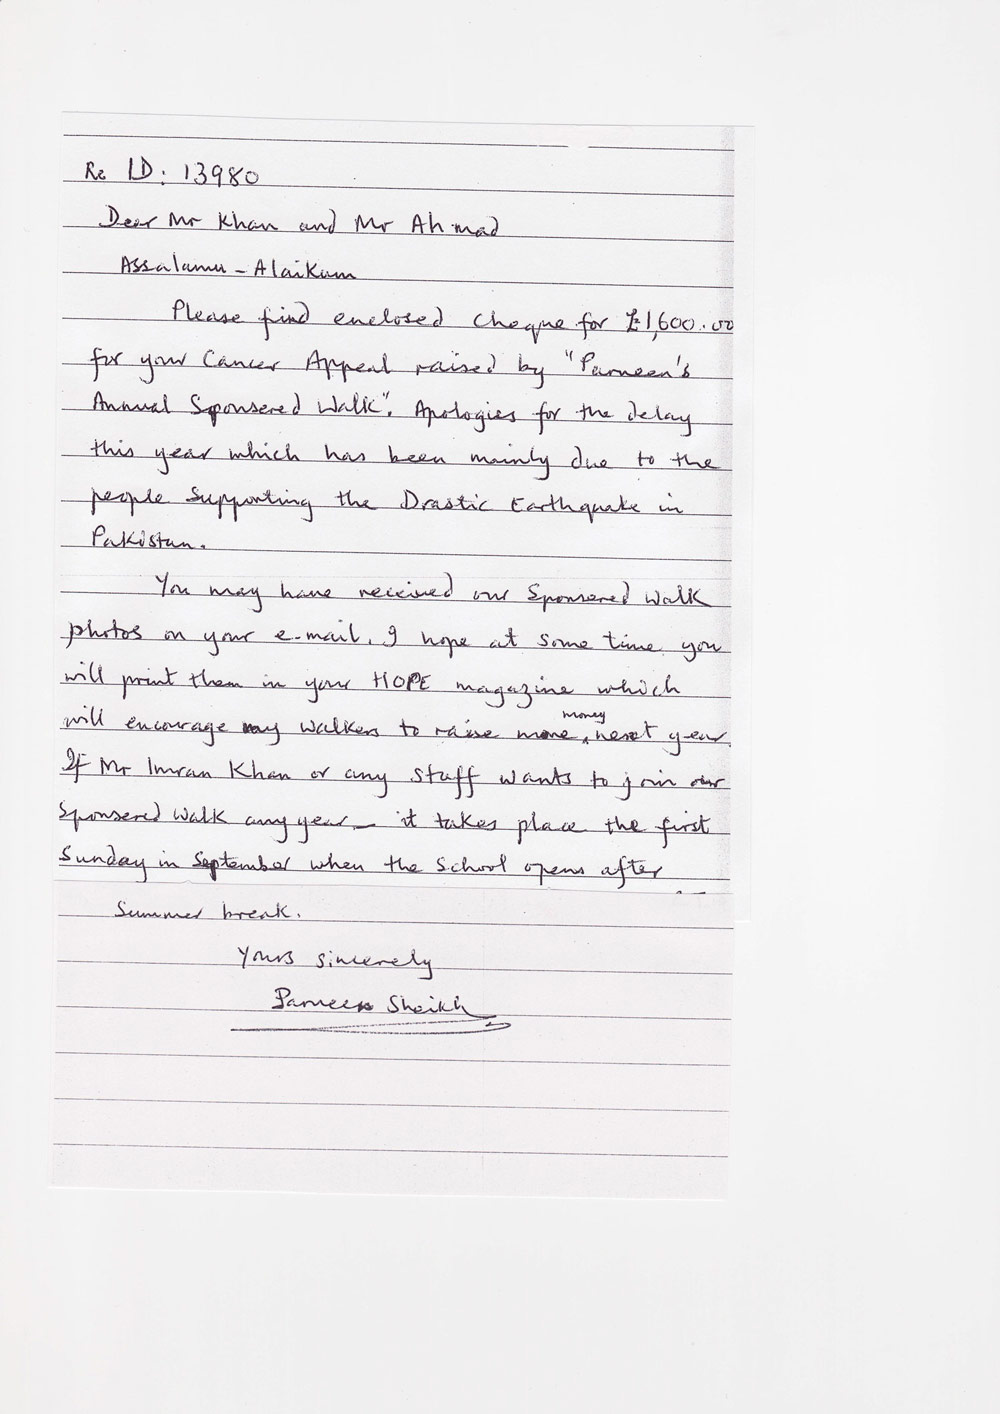 Re ID: 13980
Dear Mr Khan and Mr Ahmad
Assalamu - Alaikum
Please find enclosed cheque for £1,600.00
for your Cancer Appeal raised by "Parneen's
Annual Sponsered Walk". Apologies for the delay
this year which has been mainly due to the
people supporting the Drastic Earthquake in
Pakistan.
You may have received our Sponsered Walk
photos on your e-mail. I hope at some time you
will print them in your HOPE magazine which
money
will encourage my walkers to raise more, next year.
If Mr Imran Khan or any staff wants to join our
Sponsered Walk any year - it takes place the first
Sunday in September when the School opens after
Summer break.
Yours sincerely
Parneen Sheikh